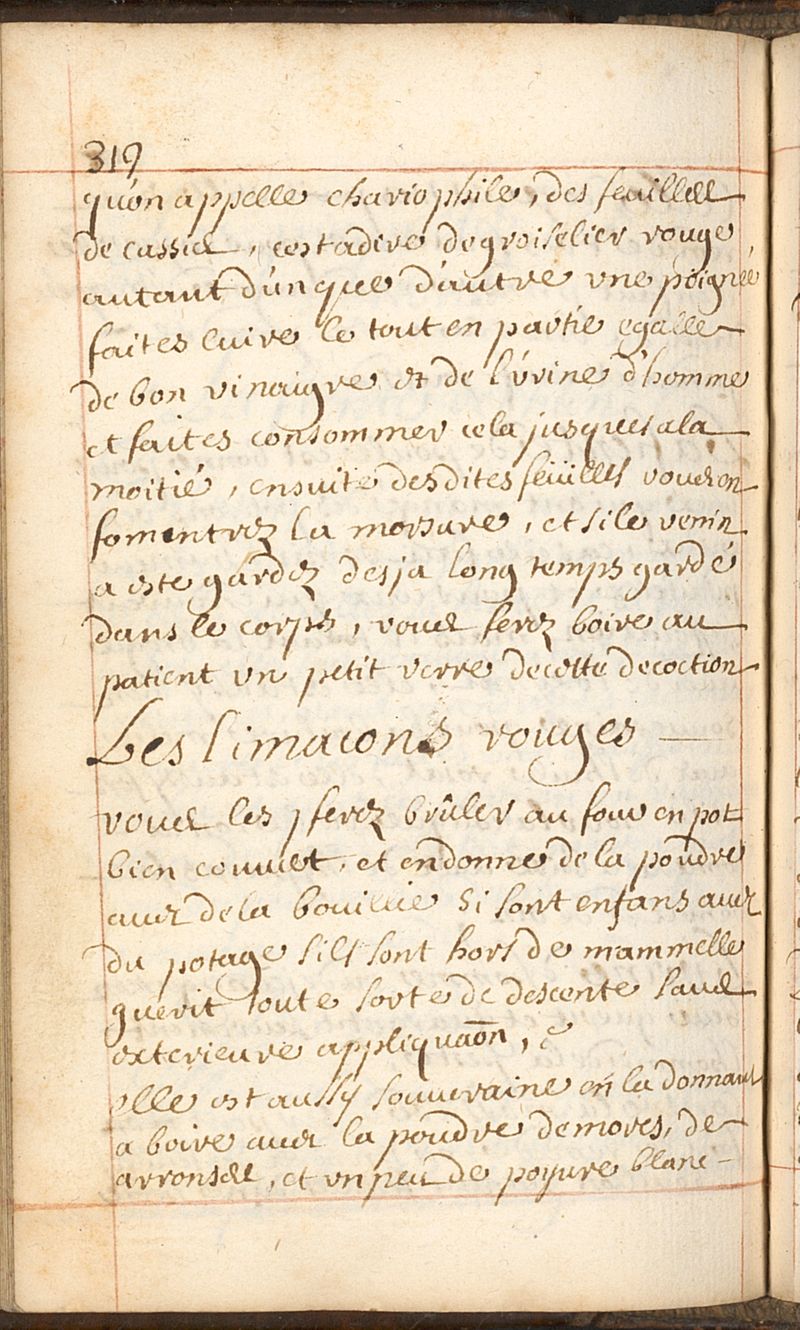 319
qu'on appelle chariophile, des feuilles
de cassis, cestadire de groiselier rouge,
autant d'un que d'autre une poignée
faites cuire le tout en partie egalle
de bon vinaigre et de l'urine d'homme
et faites consommer cela jusques a la
moitié, ensuite desdites feüilles vous en
fomentrez la morsure, et si le venin
a este gardez desja long temps gardé
dans le corps, vous ferez boire au
patient un petit verre de cette decoction
Les limacons rouges
vous les ferez brûler au four en pot
bien couvert, et en donne de la poudre
avec de la bouillie si sont enfans avec
du potage s'ils sont hors de mammelle
guerit toute sorte de descente sans
exterieure appliquaõn, &
elle est aussy souveraine en la donnant
a boire avec la poudre de mores, de
arronses, et un peu de poyure blanc